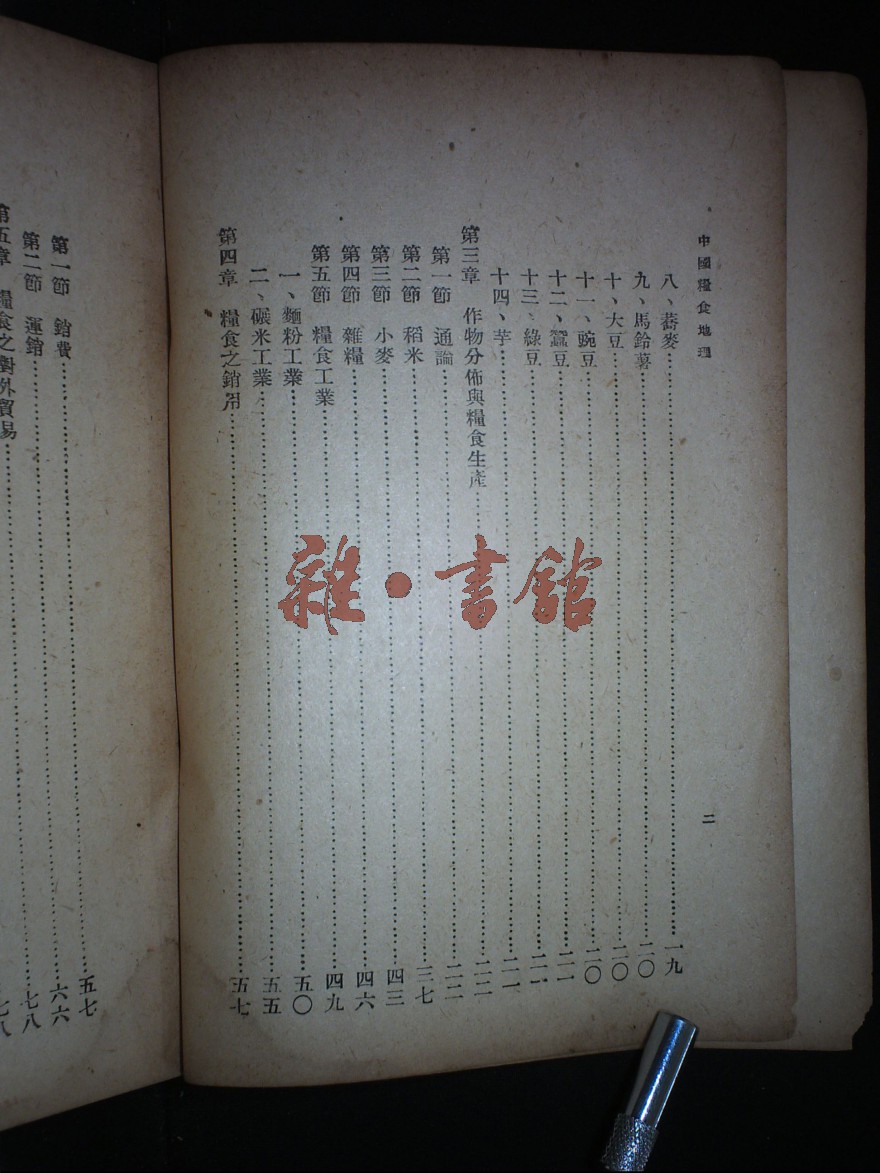 中國糧食地理
二
八、蕎麥 一九
九、馬鈴薯 二〇
十、大豆 二〇
十一、豌豆 二〇
十二、蠶豆 二一
十三、綠豆 二一
十四、芋 二一
第三章 作物分佈與糧食生產 二二
第一節 通論 二二
第二節 稻米 三七
第三節 小麥 四三
第四節 雜糧 四六
第五節 糧食工業 四九
一、麵粉工業 五〇
二、碾米工業 五五
第四章 糧食之銷用 五七
第一節 銷費 五七
第二節 運銷 六六
第五章 糧食之對外貿易 七八
雜·書館